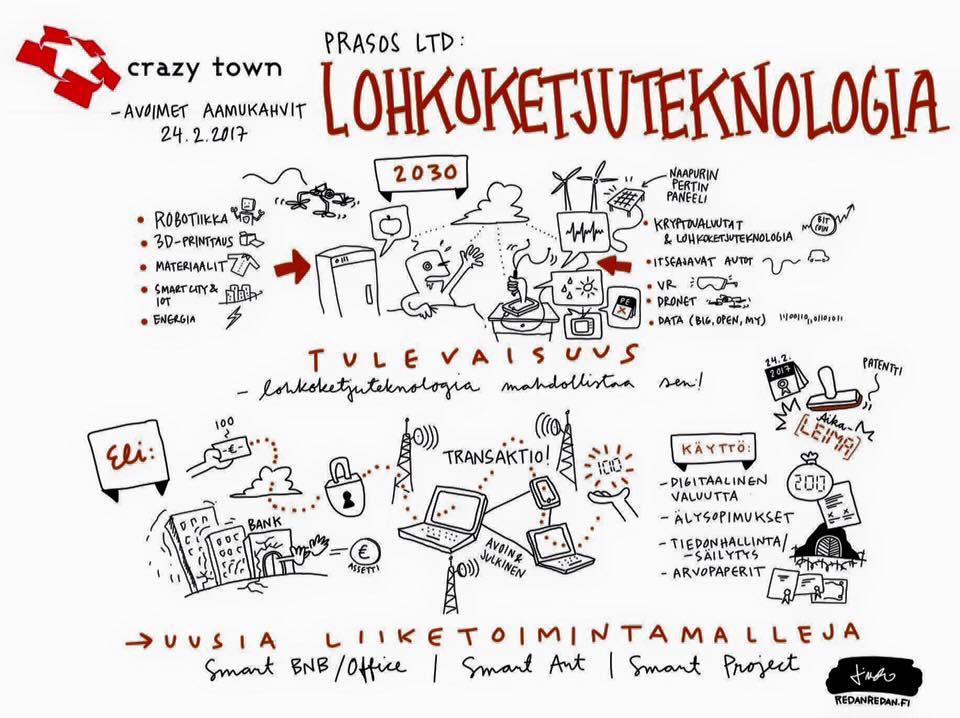 crazy town
- AVOIMET AAMUKAHVIT
24.2.2017
PRASOS LTD:
LOHKOKETJUTEKNOLOGIA
2030
• ROBOTIIKKA
• 3D-PRINTTAUS
• MATERIAALIT
• SMART CITY &
IOT
• ENERGIA
NAAPURIN
PERTIN
PANEELI
• KRYPTOVALUUTAT
& LOHKOKETJUTEKNOLOGIA
BIT
COIN
• ITSEAJAVAT AUTOT
• VR
• DRONET
• DATA (BIG, OPEN, MY)
PE
X
TULEVAISUUS
- lohkoketjuteknologia mahdollistaa sen!
24.2.
2017
PATENTTI
Aika-
[LEIMA]
Eli:
100
-€-
BANK
€
ASSETTI
TRANSAKTIO!
AVOIN &
JULKINEN
100
KÄYTTÖ:
- DIGITAALINEN
VALUUTTA
- ÄLYSOPIMUKSET
- TIEDONHALLINTA/
-SÄILYTYS
- ARVOPAPERIT
→ UUSIA LIIKETOIMINTAMALLEJA
Smart BNB/Office | Smart Ant | Smart Project
REDANREDAN.FI